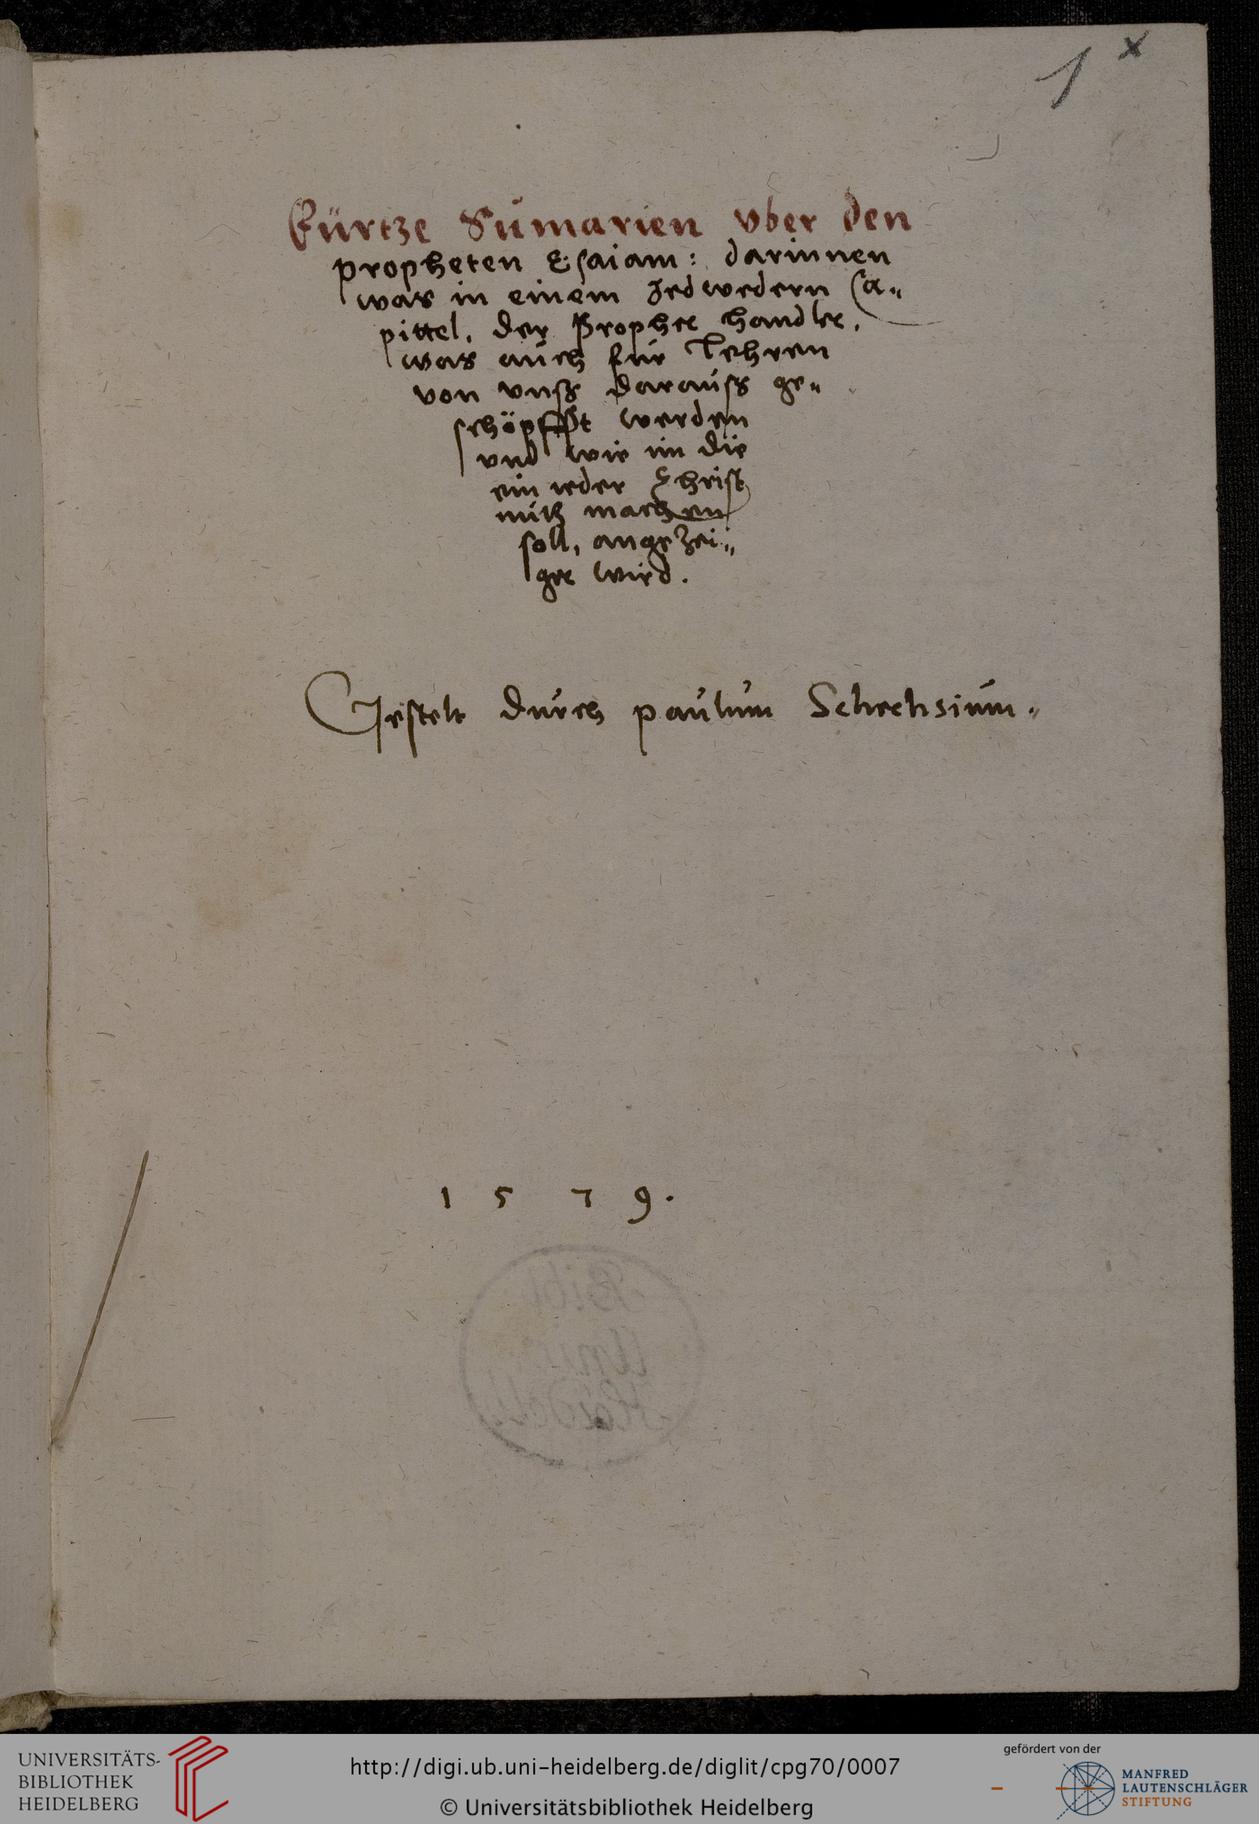 1 x
Kürtze Sumarien vber den
propheten Esaiam: darinnen
was in einem Jedwedern Ca-
pittel, der Prophet handlet,
was auch für Lehren
von vnß darauß ge-
schöpfft werden
vnd wie im die
ein ieder Christ
nütz machen
soll, angezei-
get wird.
Gestelt durch paulum Schechsium.
1579.
Bibl
Univ
Heidelb
UNIVERSITÄTS-
BIBLIOTHEK
HEIDELBERG
http://digi.ub.uni-heidelberg.de/diglit/cpg70/0007
© Universitätsbibliothek Heidelberg
gefördert von der
MANFRED
LAUTENSCHLÄGER
STIFTUNG